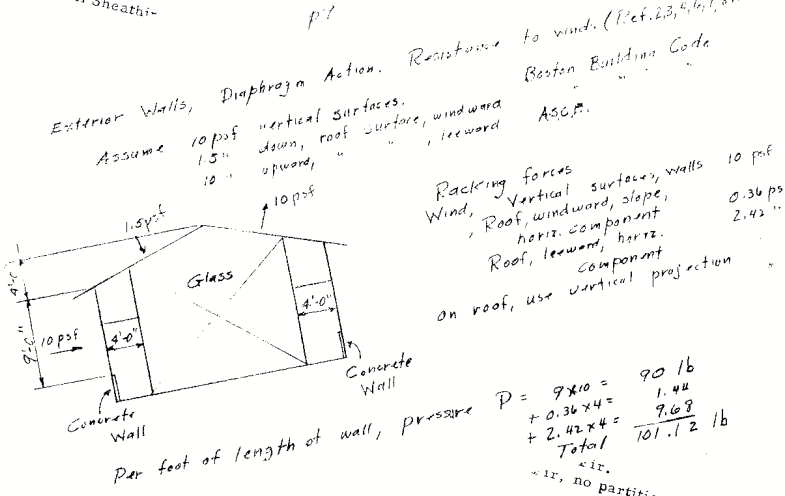 Sheathi-
p7
Exterior Walls, Diaphragm Action. Resistance to wind. (Ref. 2,3,4,6,7,
Assume 10 psf vertical surfaces. Boston Building Code
1.5 " down, roof surface, windward " " "
10 " upward, " " , leeward A.S.C.E.
Racking forces
Wind, Vertical surfaces, walls 10 psf
, Roof, windward, slope,
horiz. component 0.36 ps
Roof, leeward, horiz. 2.42 "
component
on roof, use vertical projection "
1.5 psf
10 psf
4'-0"
Glass
9'-0"
10 psf
4'-0"
4'-0"
Concrete
Wall
Concrete
Wall
Per foot of length of wall, pressure P = 9 x 10 = 90 lb
+ 0.36 x 4 = 1.44
+ 2.42 x 4 = 9.68
Total 101.12 lb
ir.
ir, no partiti